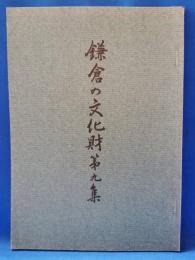 鎌倉の文化財第九集